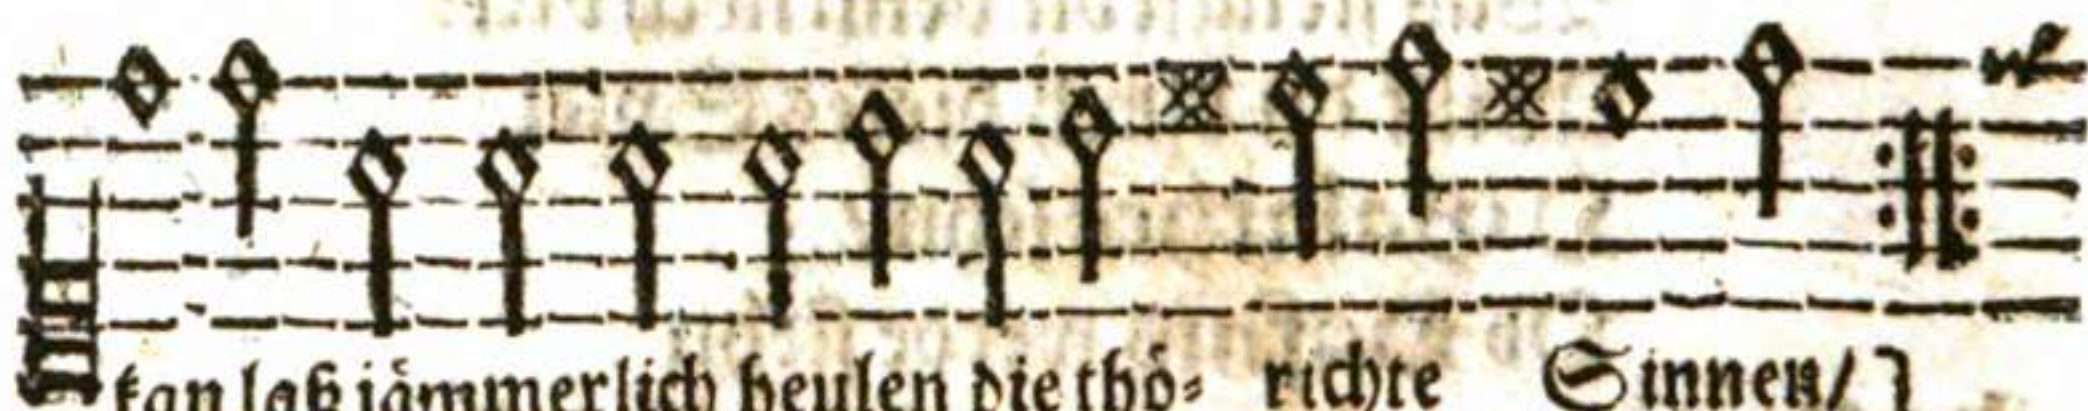 kan laß jämmerlich heulen die thö⸗ richte Sinnen/